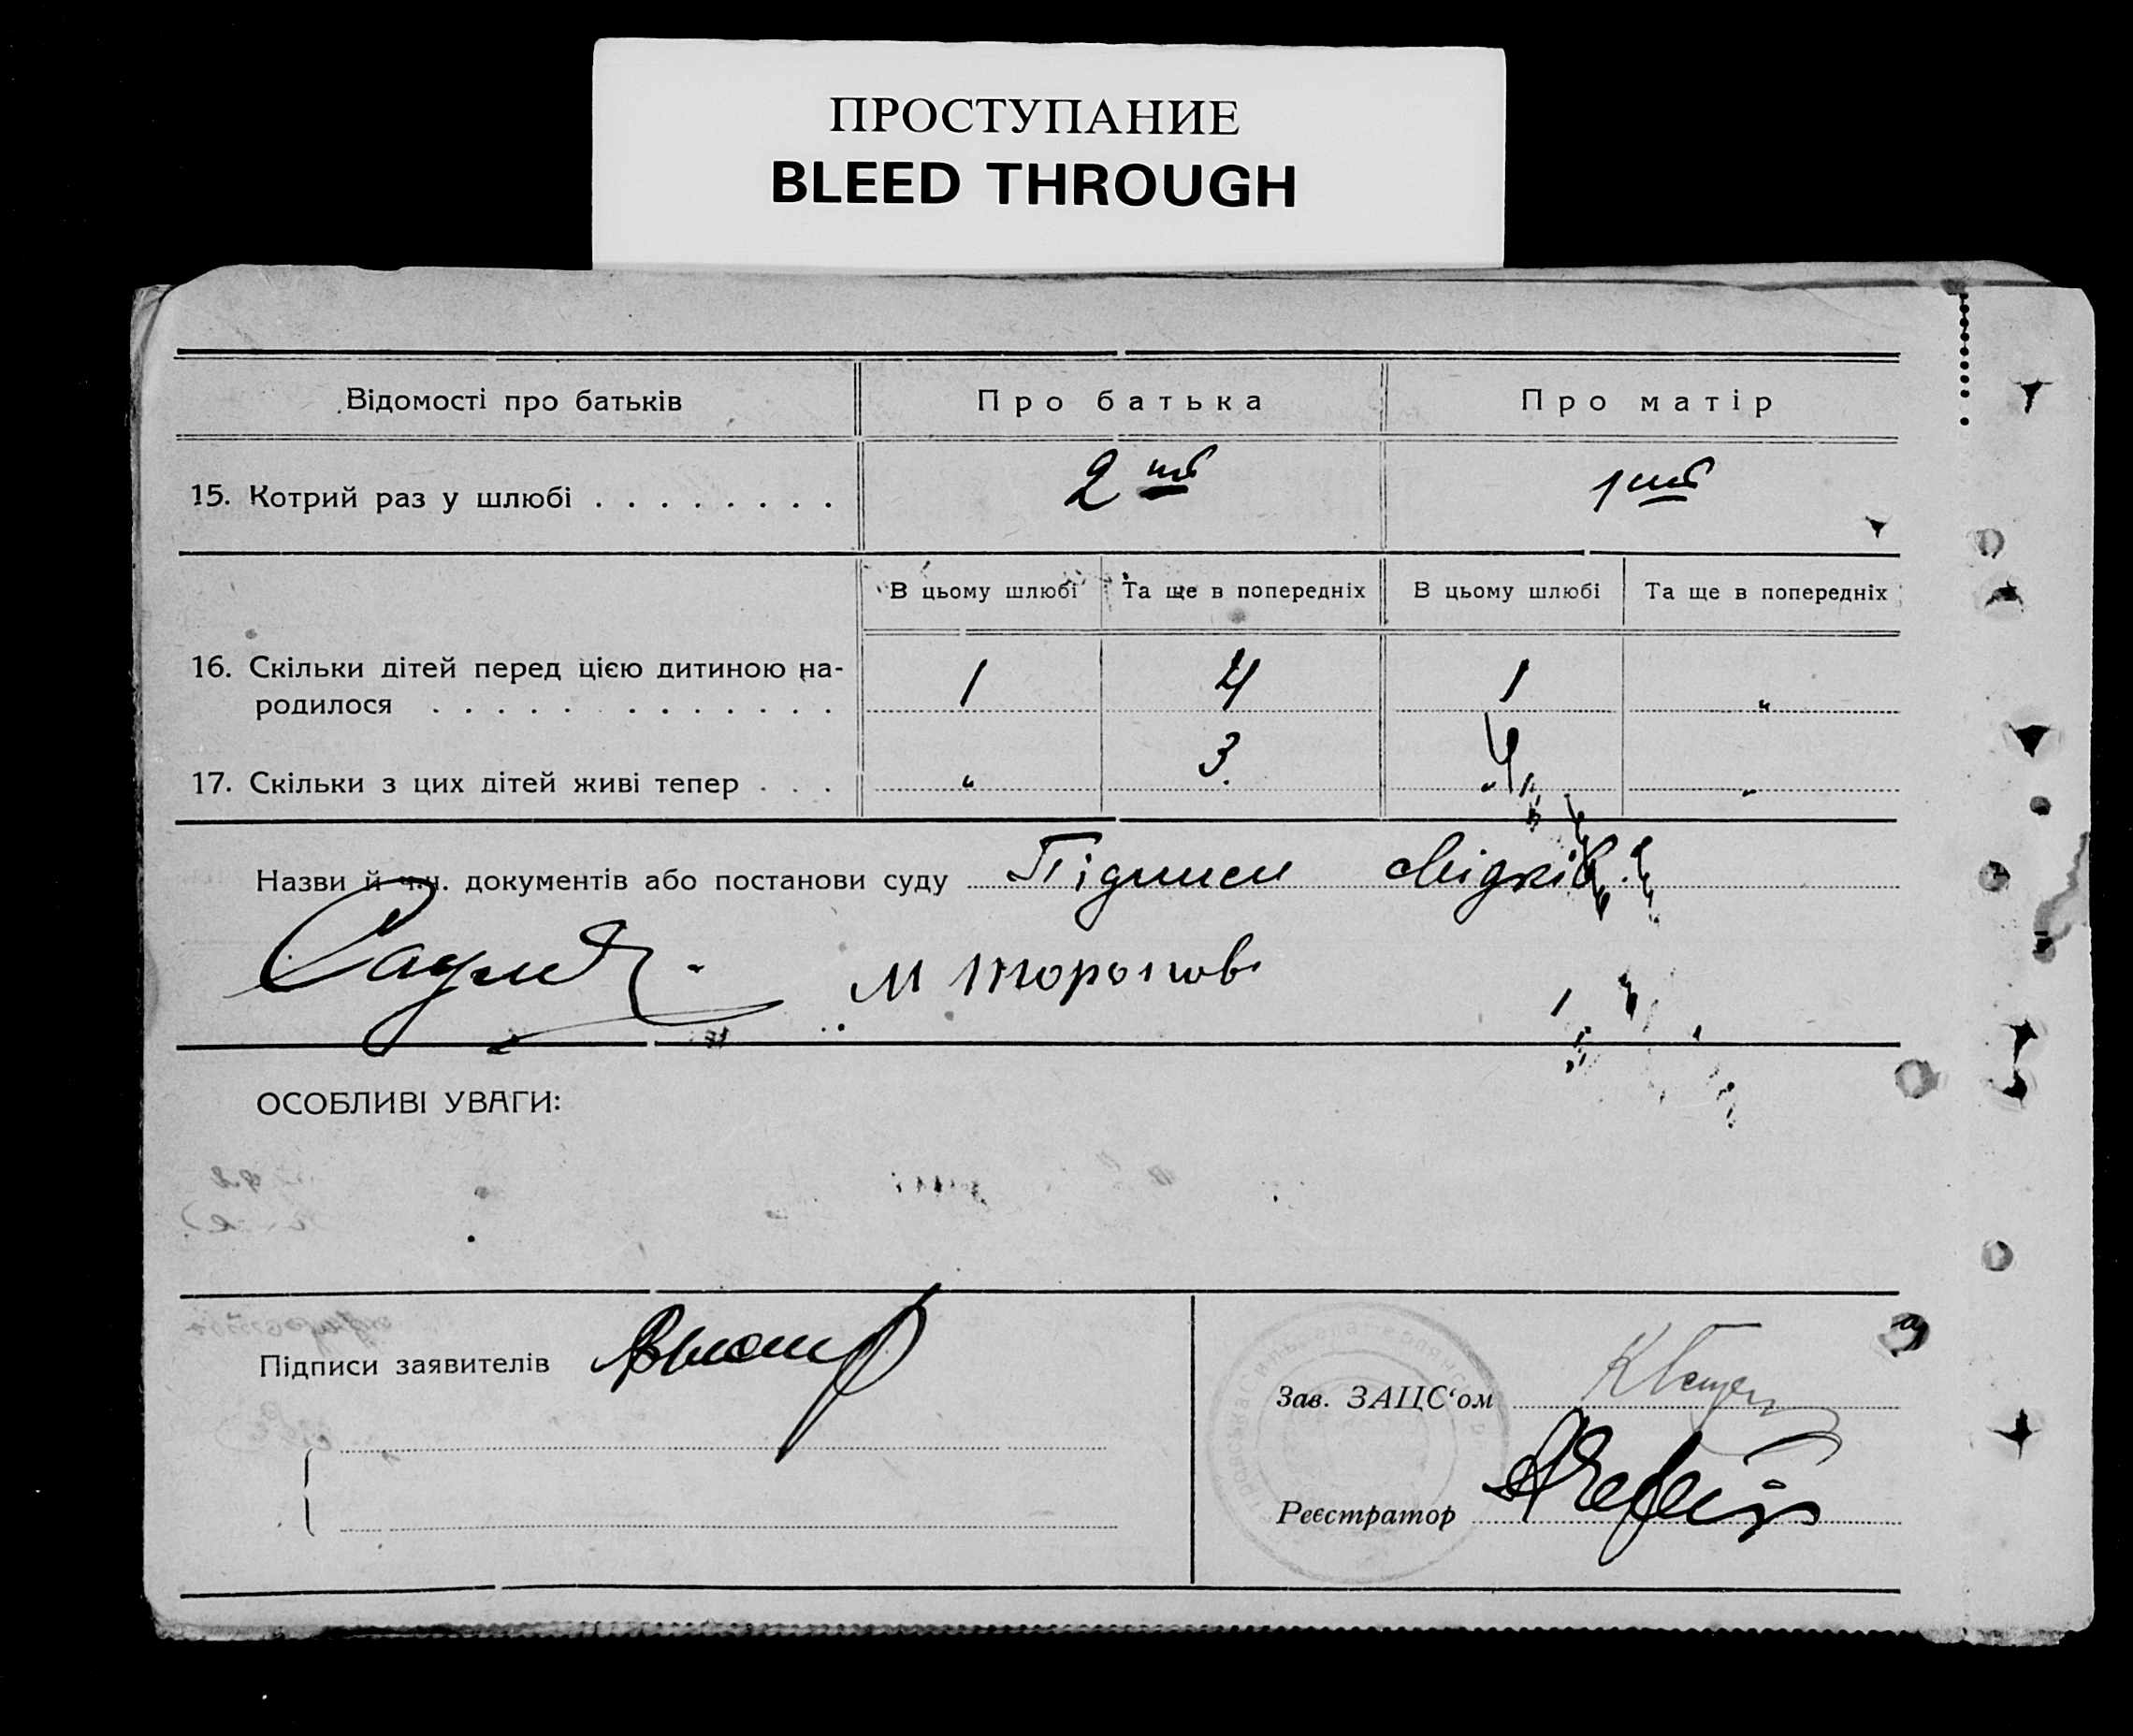 ПРОСТУПАНИЕ
BLEED THROUGH
Відомості про батьків Про батька Про матір
15. Котрий раз у шлюбі . . . . . . . . 2 ий 1 ий
В цьому шлюбі Та ще в попередніх В цьому шлюбі Та ще в попередніх
16. Скільки дітей перед цією дитиною на- 1 4 1 "
родилося . . . . . . . . . . . . .
17. Скільки з цих дітей живі тепер . . . " 3. " "
Назви й ч.ч. документів або постанови суду Підписи свідків:
М
ОСОБЛИВІ УВАГИ:
Підписи заявителів
Зав. ЗАЦС'ом
Реєстратор